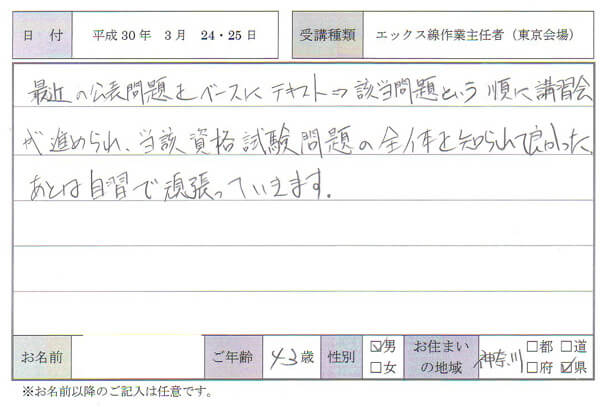 日 付 平成30年 3月 24・25日 受講種類 エックス線作業主任者（東京会場）
最近の公表問題をベースに テキスト⇒該当問題という順に講習会
が進められ、当該資格試験問題の全体を知られて良かった。
あとは自習で頑張っていきます。
お名前 ご年齢 43歳 性別 ☑男 □女 お住まいの地域 神奈川 □都 □道 □府 ☑県
※お名前以降のご記入は任意です。